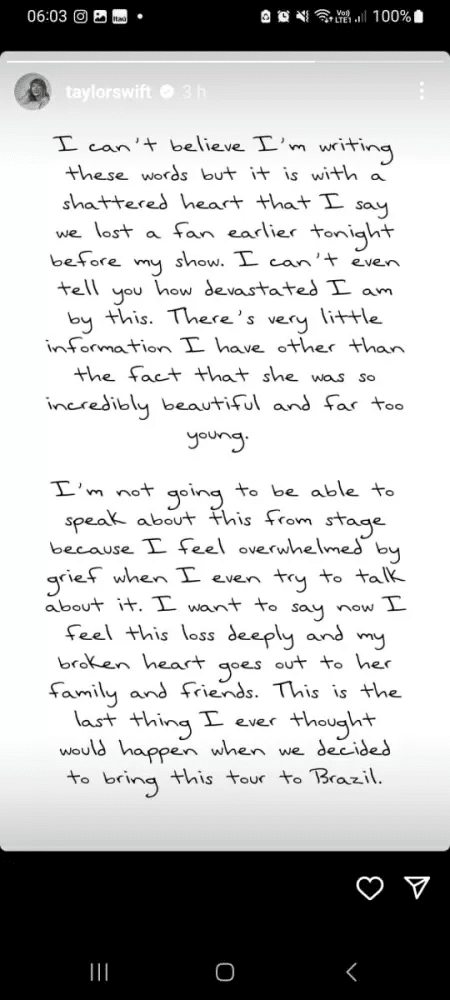 06:03
Itaú
Vo))
LTE1
100%
taylorswift 3 h
I can't believe I'm writing
these words but it is with a
shattered heart that I say
we lost a fan earlier tonight
before my show. I can't even
tell you how devastated I am
by this. There's very little
information I have other than
the fact that she was so
incredibly beautiful and far too
young.
I'm not going to be able to
speak about this from stage
because I feel overwhelmed by
grief when I even try to talk
about it. I want to say now I
feel this loss deeply and my
broken heart goes out to her
family and friends. This is the
last thing I ever thought
would happen when we decided
to bring this tour to Brazil.